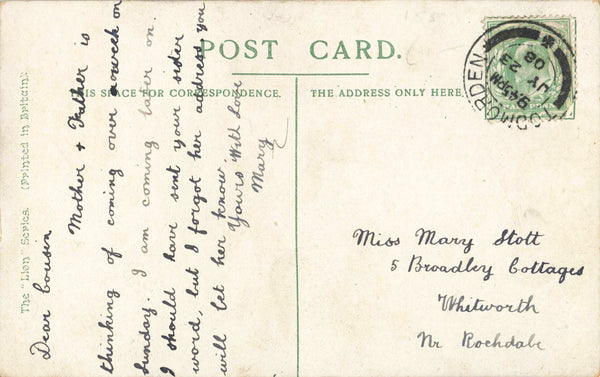 POST CARD.
THIS SPACE FOR CORRESPONDENCE.
THE ADDRESS ONLY HERE.
The "Lion" Series. (Printed in Britain).
Dear Cousin
Mother + Father is
thinking of coming over a week on
Sunday. I am coming later on.
I should have sent your sister
word, but I forgot her address, you
will let her know
Yours With Love
Mary
TODMORDEN
9.45PM
JY 23
08
Miss Mary Stott
5 Broadley Cottages
Whitworth
Nr Rochdale